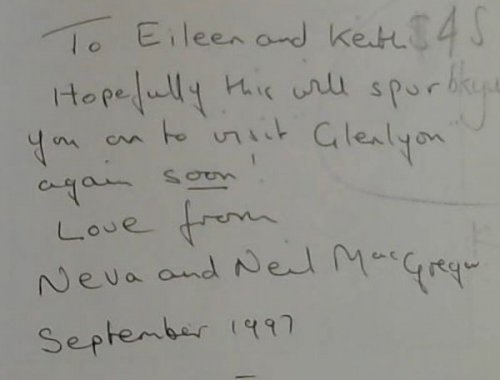 To Eileen and Keith
Hopefully this will spur
you on to visit Glenlyon
again soon!
Love from
Neva and Neil MacGregor
September 1997